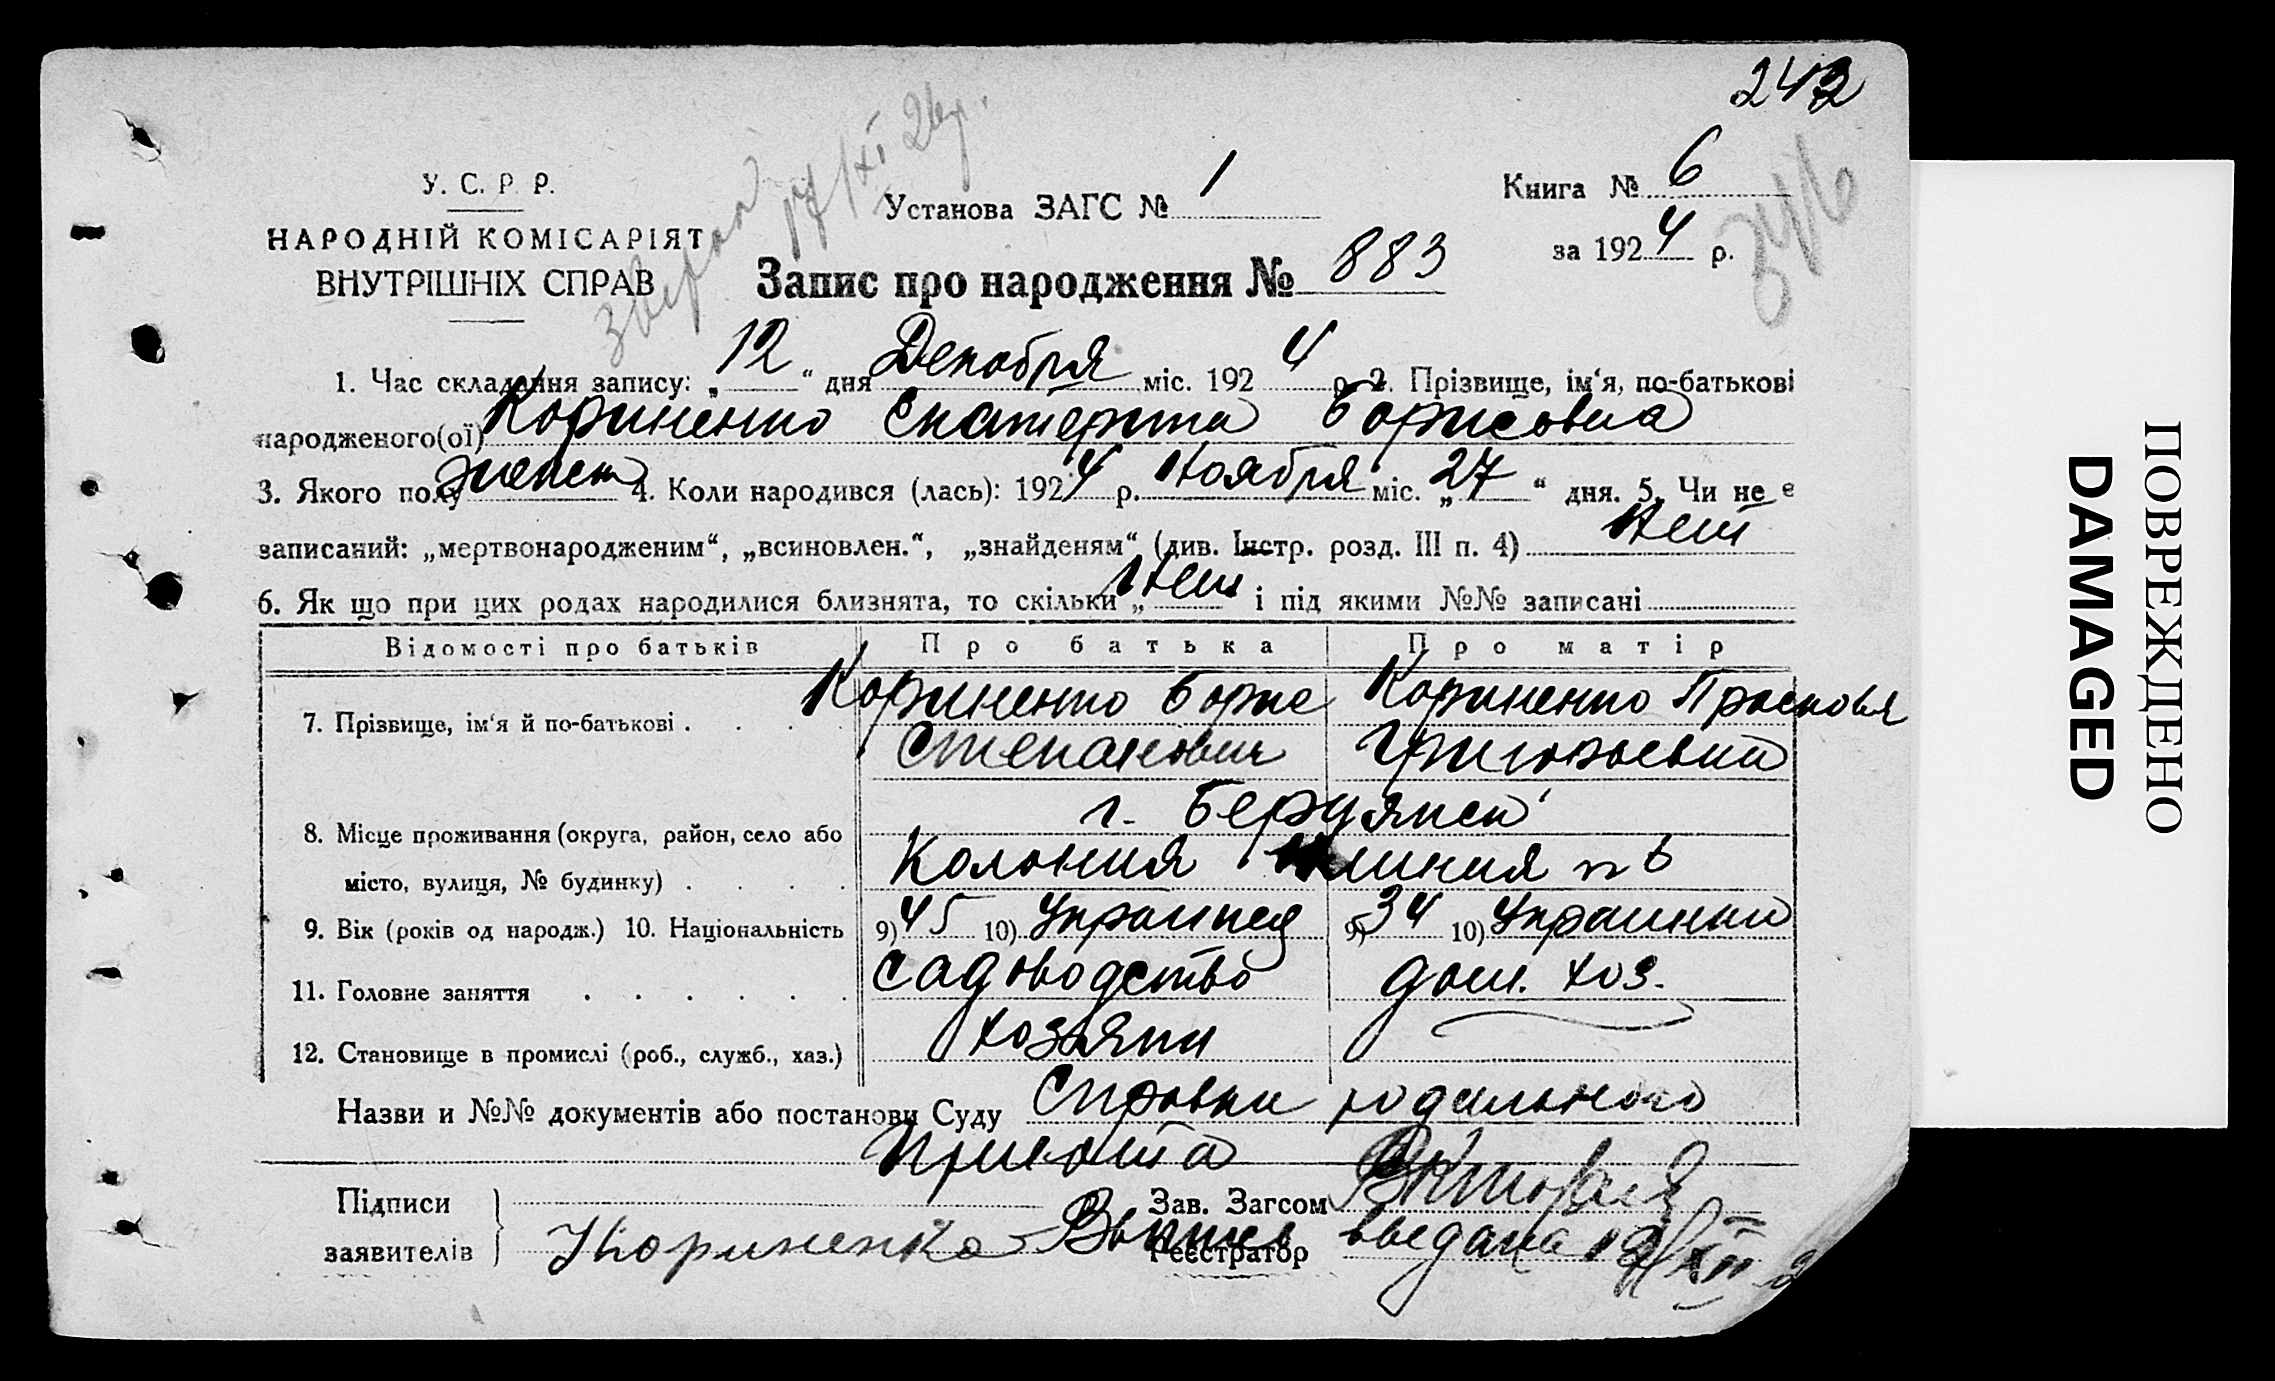 242
У. С. Р. Р.
НАРОДНІЙ КОМІСАРІЯТ
ВНУТРІШНІХ СПРАВ
17/XI 26г.
Установа ЗАГС № 1
Книга № 6
за 1924 р.
346
Запис про народження № 883
1. Час складання запису: „12“ дня Декабря міс. 1924 р. 2. Прізвище, ім‘я, по-батькові
народженого(ої) Кориненко Екатерина Борисовна
3. Якого полу женск 4. Коли народився (лась): 1924 р. Ноября міс. „27“ дня. 5. Чи не є
записаний: „мертвонародженим“, „всиновлен.“, „знайденям“ (див. Інстр. розд. III п. 4) Нет
6. Як що при цих родах народилися близнята, то скільки „Нет“ і під якими №№ записані
Відомості про батьків Про батька Про матір
7. Прізвище, ім‘я й по-батькові . . . . Кориненко Борис Кориненко Прасковья
Степанович Григорьевна
г. Бердянск
8. Місце проживання (округа, район, село або
місто, вулиця, № будинку) . . . . Колония линия n 6
9. Вік (років од народж.) 10. Національність 9) 45 10) Украинец 9) 34 10) Украинка
11. Головне заняття . . . . . . садоводство дом. хоз.
12. Становище в промислі (роб., служб., хаз.) хозяин
Назви и №№ документів або постанови Суду Справка родильного
приюта
Підписи
заявителів } Кориненко
Зав. Загсом
Реєстратор
Выпись выдана 12/XII 2
ПОВРЕЖДЕНО
DAMAGED